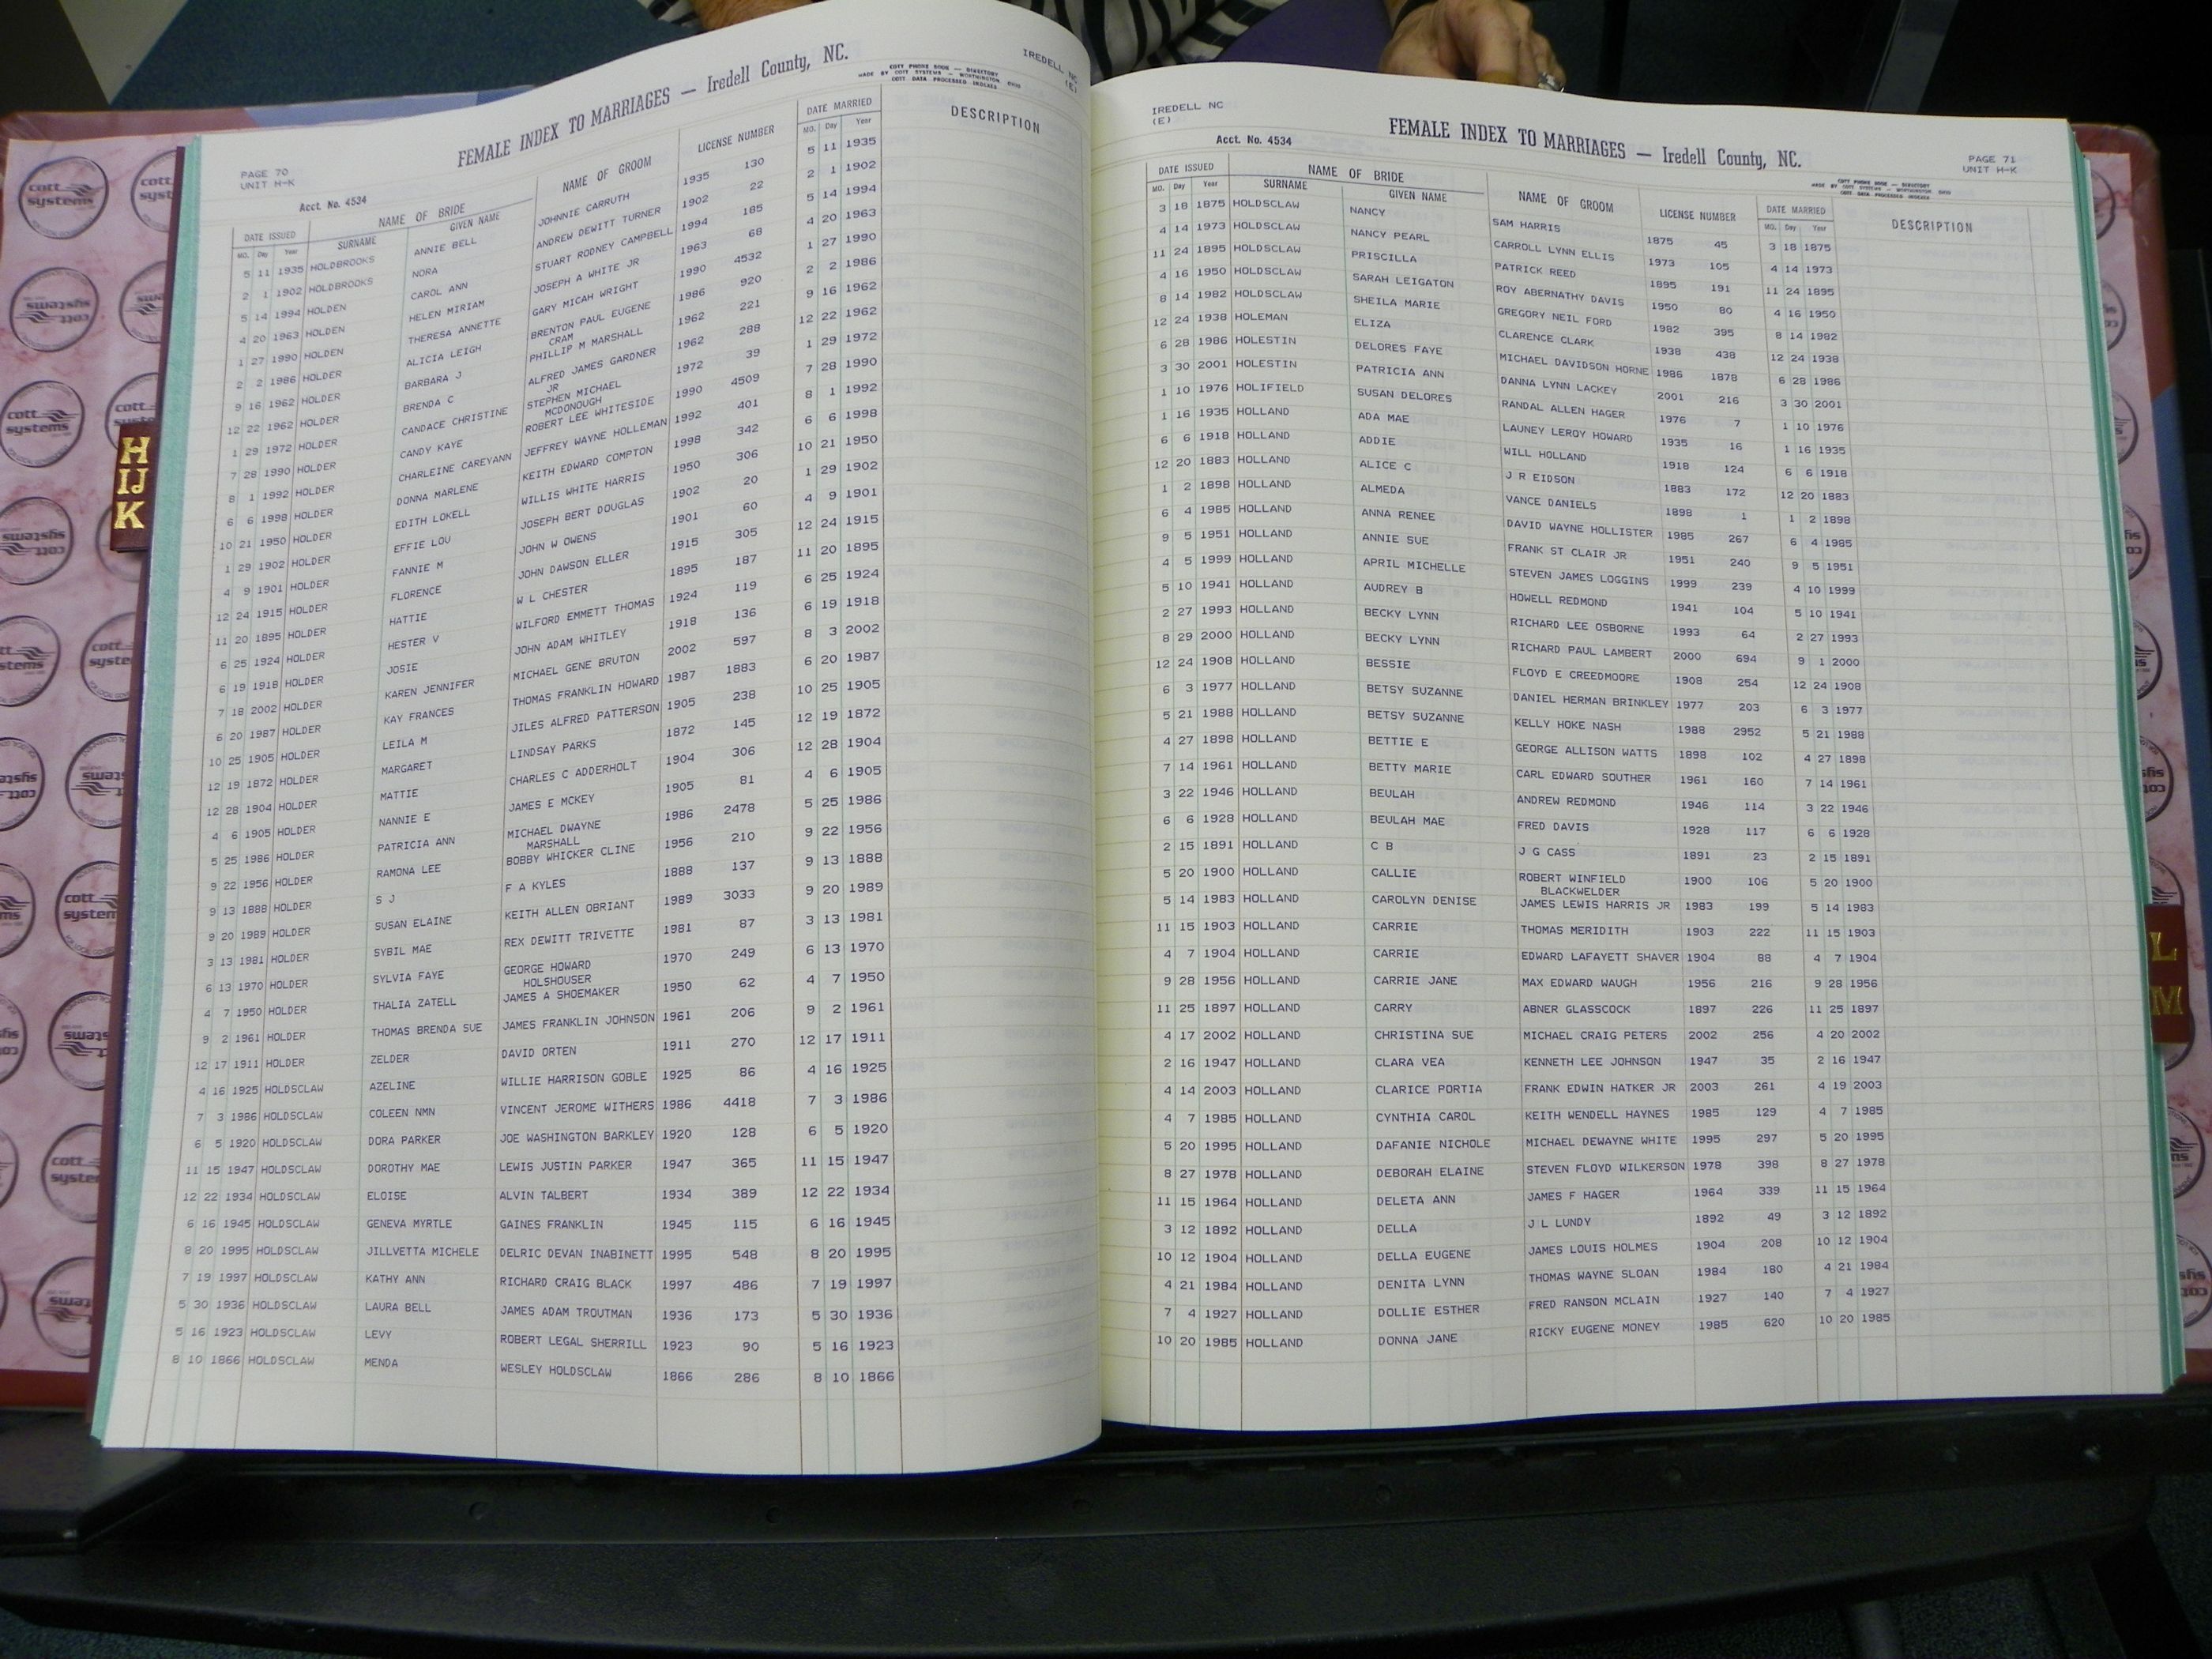 FEMALE INDEX TO MARRIAGES — Iredell County, NC.
COTT PHONE BOOK — DIRECTORY
MADE BY COTT SYSTEMS — WORTHINGTON, OHIO
COTT DATA PROCESSED INDEXES
IREDELL NC
(E)
PAGE 70
UNIT H-K
Acct. No. 4534
DATE ISSUED NAME OF BRIDE NAME OF GROOM LICENSE NUMBER DATE MARRIED DESCRIPTION
MO. Day Year SURNAME GIVEN NAME MO. Day Year
5 11 1935 HOLDBROOKS ANNIE BELL JOHNNIE CARRUTH 1935 130 5 11 1935
2 1 1902 HOLDBROOKS NORA ANDREW DEWITT TURNER 1902 22 2 1 1902
5 14 1994 HOLDEN CAROL ANN STUART RODNEY CAMPBELL 1994 185 5 14 1994
4 20 1963 HOLDEN HELEN MIRIAM JOSEPH A WHITE JR 1963 68 4 20 1963
1 27 1990 HOLDEN THERESA ANNETTE GARY MICAH WRIGHT 1990 4532 1 27 1990
2 2 1986 HOLDER ALICIA LEIGH BRENTON PAUL EUGENE 1986 920 2 2 1986
CRAM
9 16 1962 HOLDER BARBARA J PHILLIP M MARSHALL 1962 221 9 16 1962
12 22 1962 HOLDER BRENDA C ALFRED JAMES GARDNER 1962 288 12 22 1962
JR
1 29 1972 HOLDER CANDACE CHRISTINE STEPHEN MICHAEL 1972 39 1 29 1972
MCDONOUGH
7 28 1990 HOLDER CANDY KAYE ROBERT LEE WHITESIDE 1990 4509 7 28 1990
8 1 1992 HOLDER CHARLEINE CAREYANN JEFFREY WAYNE HOLLEMAN 1992 401 8 1 1992
6 6 1998 HOLDER DONNA MARLENE KEITH EDWARD COMPTON 1998 342 6 6 1998
10 21 1950 HOLDER EDITH LOKELL WILLIS WHITE HARRIS 1950 306 10 21 1950
1 29 1902 HOLDER EFFIE LOU JOSEPH BERT DOUGLAS 1902 20 1 29 1902
4 9 1901 HOLDER FANNIE M JOHN W OWENS 1901 60 4 9 1901
12 24 1915 HOLDER FLORENCE JOHN DAWSON ELLER 1915 305 12 24 1915
11 20 1895 HOLDER HATTIE W L CHESTER 1895 187 11 20 1895
6 25 1924 HOLDER HESTER V WILFORD EMMETT THOMAS 1924 119 6 25 1924
6 19 1918 HOLDER JOSIE JOHN ADAM WHITLEY 1918 136 6 19 1918
7 18 2002 HOLDER KAREN JENNIFER MICHAEL GENE BRUTON 2002 597 8 3 2002
6 20 1987 HOLDER KAY FRANCES THOMAS FRANKLIN HOWARD 1987 1883 6 20 1987
10 25 1905 HOLDER LEILA M JILES ALFRED PATTERSON 1905 238 10 25 1905
12 19 1872 HOLDER MARGARET LINDSAY PARKS 1872 145 12 19 1872
12 28 1904 HOLDER MATTIE CHARLES C ADDERHOLT 1904 306 12 28 1904
4 6 1905 HOLDER NANNIE E JAMES E MCKEY 1905 81 4 6 1905
5 25 1986 HOLDER PATRICIA ANN MICHAEL DWAYNE 1986 2478 5 25 1986
MARSHALL
9 22 1956 HOLDER RAMONA LEE BOBBY WHICKER CLINE 1956 210 9 22 1956
9 13 1888 HOLDER S J F A KYLES 1888 137 9 13 1888
9 20 1989 HOLDER SUSAN ELAINE KEITH ALLEN OBRIANT 1989 3033 9 20 1989
3 13 1981 HOLDER SYBIL MAE REX DEWITT TRIVETTE 1981 87 3 13 1981
6 13 1970 HOLDER SYLVIA FAYE GEORGE HOWARD 1970 249 6 13 1970
HOLSHOUSER
4 7 1950 HOLDER THALIA ZATELL JAMES A SHOEMAKER 1950 62 4 7 1950
9 2 1961 HOLDER THOMAS BRENDA SUE JAMES FRANKLIN JOHNSON 1961 206 9 2 1961
12 17 1911 HOLDER ZELDER DAVID ORTEN 1911 270 12 17 1911
4 16 1925 HOLDSCLAW AZELINE WILLIE HARRISON GOBLE 1925 86 4 16 1925
7 3 1986 HOLDSCLAW COLEEN NMN VINCENT JEROME WITHERS 1986 4418 7 3 1986
6 5 1920 HOLDSCLAW DORA PARKER JOE WASHINGTON BARKLEY 1920 128 6 5 1920
11 15 1947 HOLDSCLAW DOROTHY MAE LEWIS JUSTIN PARKER 1947 365 11 15 1947
12 22 1934 HOLDSCLAW ELOISE ALVIN TALBERT 1934 389 12 22 1934
6 16 1945 HOLDSCLAW GENEVA MYRTLE GAINES FRANKLIN 1945 115 6 16 1945
8 20 1995 HOLDSCLAW JILLVETTA MICHELE DELRIC DEVAN INABINETT 1995 548 8 20 1995
7 19 1997 HOLDSCLAW KATHY ANN RICHARD CRAIG BLACK 1997 486 7 19 1997
5 30 1936 HOLDSCLAW LAURA BELL JAMES ADAM TROUTMAN 1936 173 5 30 1936
5 16 1923 HOLDSCLAW LEVY ROBERT LEGAL SHERRILL 1923 90 5 16 1923
8 10 1866 HOLDSCLAW MENDA WESLEY HOLDSCLAW 1866 286 8 10 1866
IREDELL NC
(E)
Acct. No. 4534
FEMALE INDEX TO MARRIAGES — Iredell County, NC.
PAGE 71
UNIT H-K
COTT PHONE BOOK — DIRECTORY
MADE BY COTT SYSTEMS — WORTHINGTON, OHIO
COTT DATA PROCESSED INDEXES
DATE ISSUED NAME OF BRIDE NAME OF GROOM LICENSE NUMBER DATE MARRIED DESCRIPTION
MO. Day Year SURNAME GIVEN NAME MO. Day Year
3 18 1875 HOLDSCLAW NANCY SAM HARRIS 1875 45 3 18 1875
4 14 1973 HOLDSCLAW NANCY PEARL CARROLL LYNN ELLIS 1973 105 4 14 1973
11 24 1895 HOLDSCLAW PRISCILLA PATRICK REED 1895 191 11 24 1895
4 16 1950 HOLDSCLAW SARAH LEIGATON ROY ABERNATHY DAVIS 1950 80 4 16 1950
8 14 1982 HOLDSCLAW SHEILA MARIE GREGORY NEIL FORD 1982 395 8 14 1982
12 24 1938 HOLEMAN ELIZA CLARENCE CLARK 1938 438 12 24 1938
6 28 1986 HOLESTIN DELORES FAYE MICHAEL DAVIDSON HORNE 1986 1878 6 28 1986
3 30 2001 HOLESTIN PATRICIA ANN DANNA LYNN LACKEY 2001 216 3 30 2001
1 10 1976 HOLIFIELD SUSAN DELORES RANDAL ALLEN HAGER 1976 7 1 10 1976
1 16 1935 HOLLAND ADA MAE LAUNEY LEROY HOWARD 1935 16 1 16 1935
6 6 1918 HOLLAND ADDIE WILL HOLLAND 1918 124 6 6 1918
12 20 1883 HOLLAND ALICE C J R EIDSON 1883 172 12 20 1883
1 2 1898 HOLLAND ALMEDA VANCE DANIELS 1898 1 1 2 1898
6 4 1985 HOLLAND ANNA RENEE DAVID WAYNE HOLLISTER 1985 267 6 4 1985
9 5 1951 HOLLAND ANNIE SUE FRANK ST CLAIR JR 1951 240 9 5 1951
4 5 1999 HOLLAND APRIL MICHELLE STEVEN JAMES LOGGINS 1999 239 4 10 1999
5 10 1941 HOLLAND AUDREY B HOWELL REDMOND 1941 104 5 10 1941
2 27 1993 HOLLAND BECKY LYNN RICHARD LEE OSBORNE 1993 64 2 27 1993
8 29 2000 HOLLAND BECKY LYNN RICHARD PAUL LAMBERT 2000 694 9 1 2000
12 24 1908 HOLLAND BESSIE FLOYD E CREEDMOORE 1908 254 12 24 1908
6 3 1977 HOLLAND BETSY SUZANNE DANIEL HERMAN BRINKLEY 1977 203 6 3 1977
5 21 1988 HOLLAND BETSY SUZANNE KELLY HOKE NASH 1988 2952 5 21 1988
4 27 1898 HOLLAND BETTIE E GEORGE ALLISON WATTS 1898 102 4 27 1898
7 14 1961 HOLLAND BETTY MARIE CARL EDWARD SOUTHER 1961 160 7 14 1961
3 22 1946 HOLLAND BEULAH ANDREW REDMOND 1946 114 3 22 1946
6 6 1928 HOLLAND BEULAH MAE FRED DAVIS 1928 117 6 6 1928
2 15 1891 HOLLAND C B J G CASS 1891 23 2 15 1891
5 20 1900 HOLLAND CALLIE ROBERT WINFIELD 1900 106 5 20 1900
BLACKWELDER
5 14 1983 HOLLAND CAROLYN DENISE JAMES LEWIS HARRIS JR 1983 199 5 14 1983
11 15 1903 HOLLAND CARRIE THOMAS MERIDITH 1903 222 11 15 1903
4 7 1904 HOLLAND CARRIE EDWARD LAFAYETT SHAVER 1904 88 4 7 1904
9 28 1956 HOLLAND CARRIE JANE MAX EDWARD WAUGH 1956 216 9 28 1956
11 25 1897 HOLLAND CARRY ABNER GLASSCOCK 1897 226 11 25 1897
4 17 2002 HOLLAND CHRISTINA SUE MICHAEL CRAIG PETERS 2002 256 4 20 2002
2 16 1947 HOLLAND CLARA VEA KENNETH LEE JOHNSON 1947 35 2 16 1947
4 14 2003 HOLLAND CLARICE PORTIA FRANK EDWIN HATKER JR 2003 261 4 19 2003
4 7 1985 HOLLAND CYNTHIA CAROL KEITH WENDELL HAYNES 1985 129 4 7 1985
5 20 1995 HOLLAND DAFANIE NICHOLE MICHAEL DEWAYNE WHITE 1995 297 5 20 1995
8 27 1978 HOLLAND DEBORAH ELAINE STEVEN FLOYD WILKERSON 1978 398 8 27 1978
11 15 1964 HOLLAND DELETA ANN JAMES F HAGER 1964 339 11 15 1964
3 12 1892 HOLLAND DELLA J L LUNDY 1892 49 3 12 1892
10 12 1904 HOLLAND DELLA EUGENE JAMES LOUIS HOLMES 1904 208 10 12 1904
4 21 1984 HOLLAND DENITA LYNN THOMAS WAYNE SLOAN 1984 180 4 21 1984
7 4 1927 HOLLAND DOLLIE ESTHER FRED RANSON MCLAIN 1927 140 7 4 1927
10 20 1985 HOLLAND DONNA JANE RICKY EUGENE MONEY 1985 620 10 20 1985
H
IJ
K
L
M
cott
systems